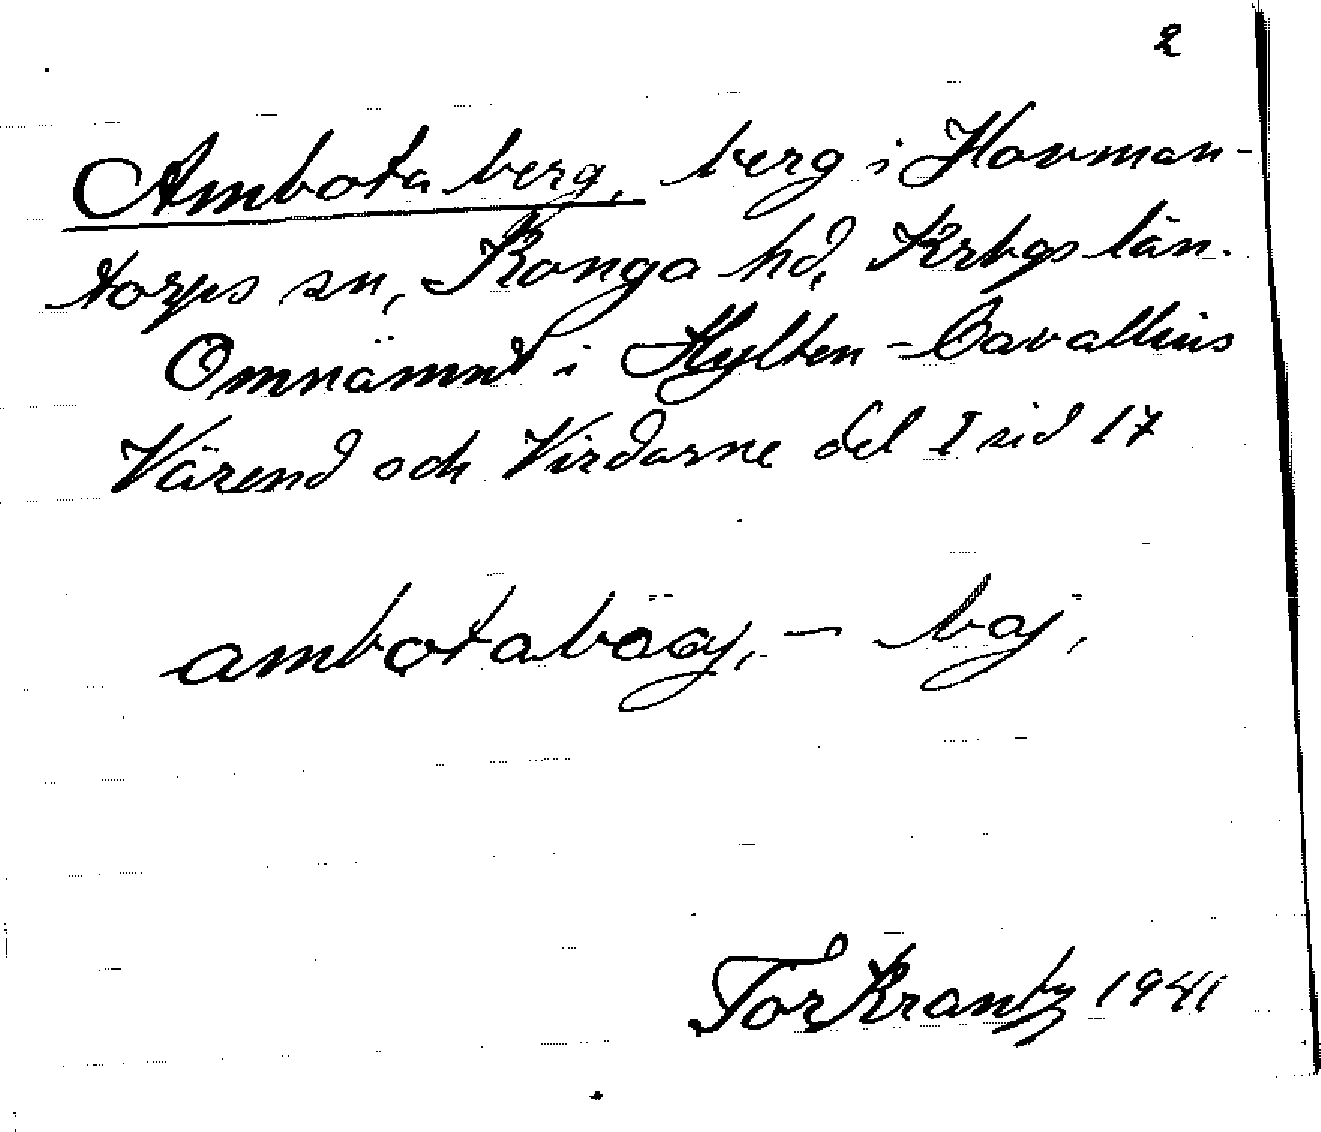 2
Ambota berg, berg i Hovman-
torps sn, Konga hd, Krbgs län.
Omnämnt i Hylten-Cavallius
Värend och Virdarne del I sid 17
ambotabäaj, - baj,
Tor Krantz 1941